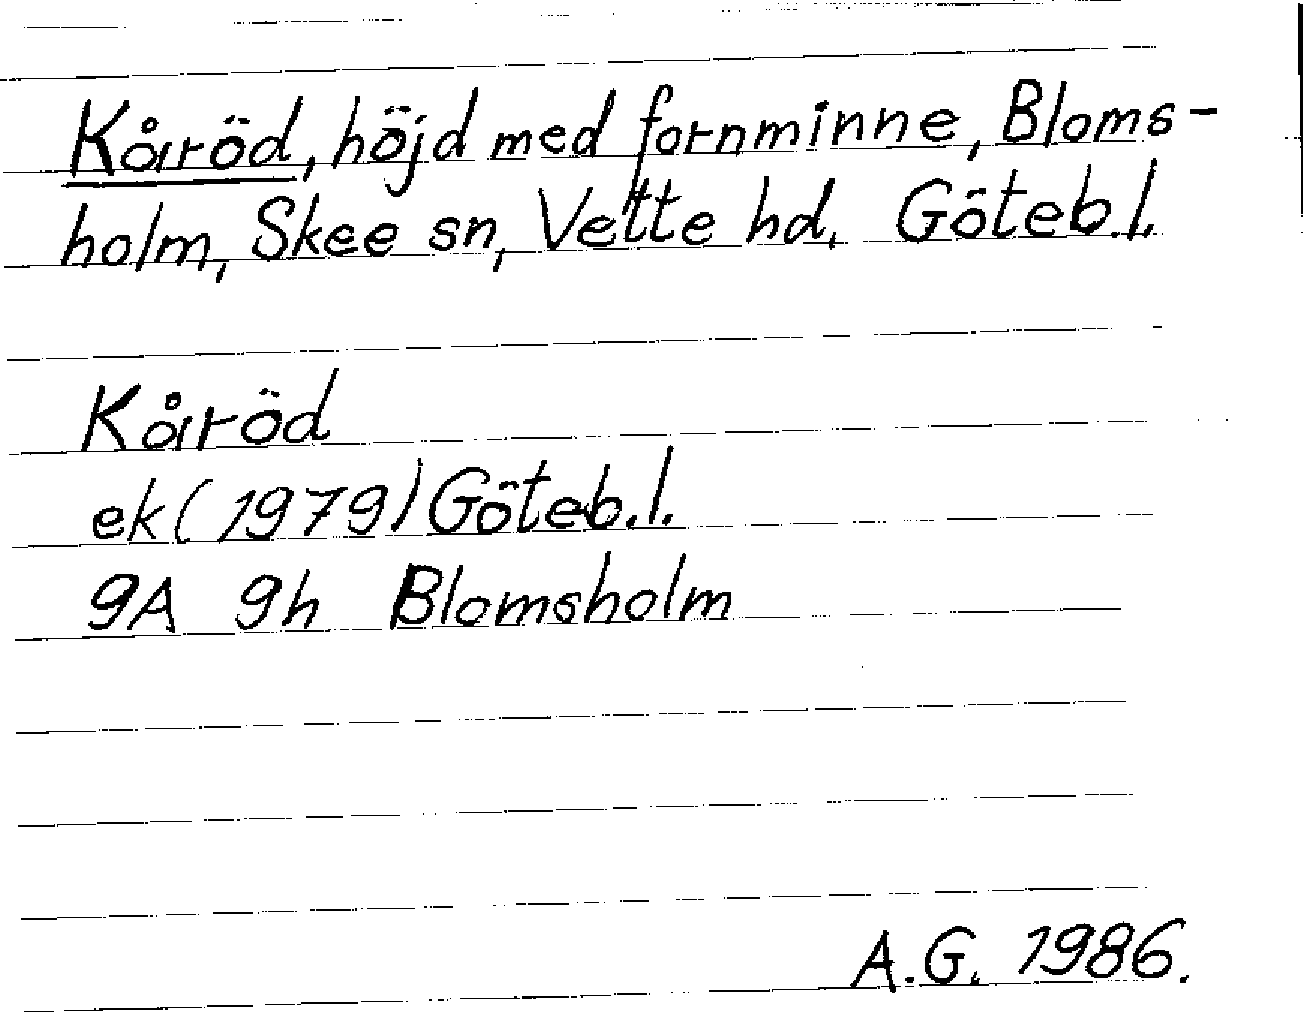 Kåröd, höjd med fornminne, Bloms-
holm, Skee sn, Vette hd, Göteb.l.
Kåröd
ek (1979) Göteb.l.
9A 9h Blomsholm
A.G. 1986.